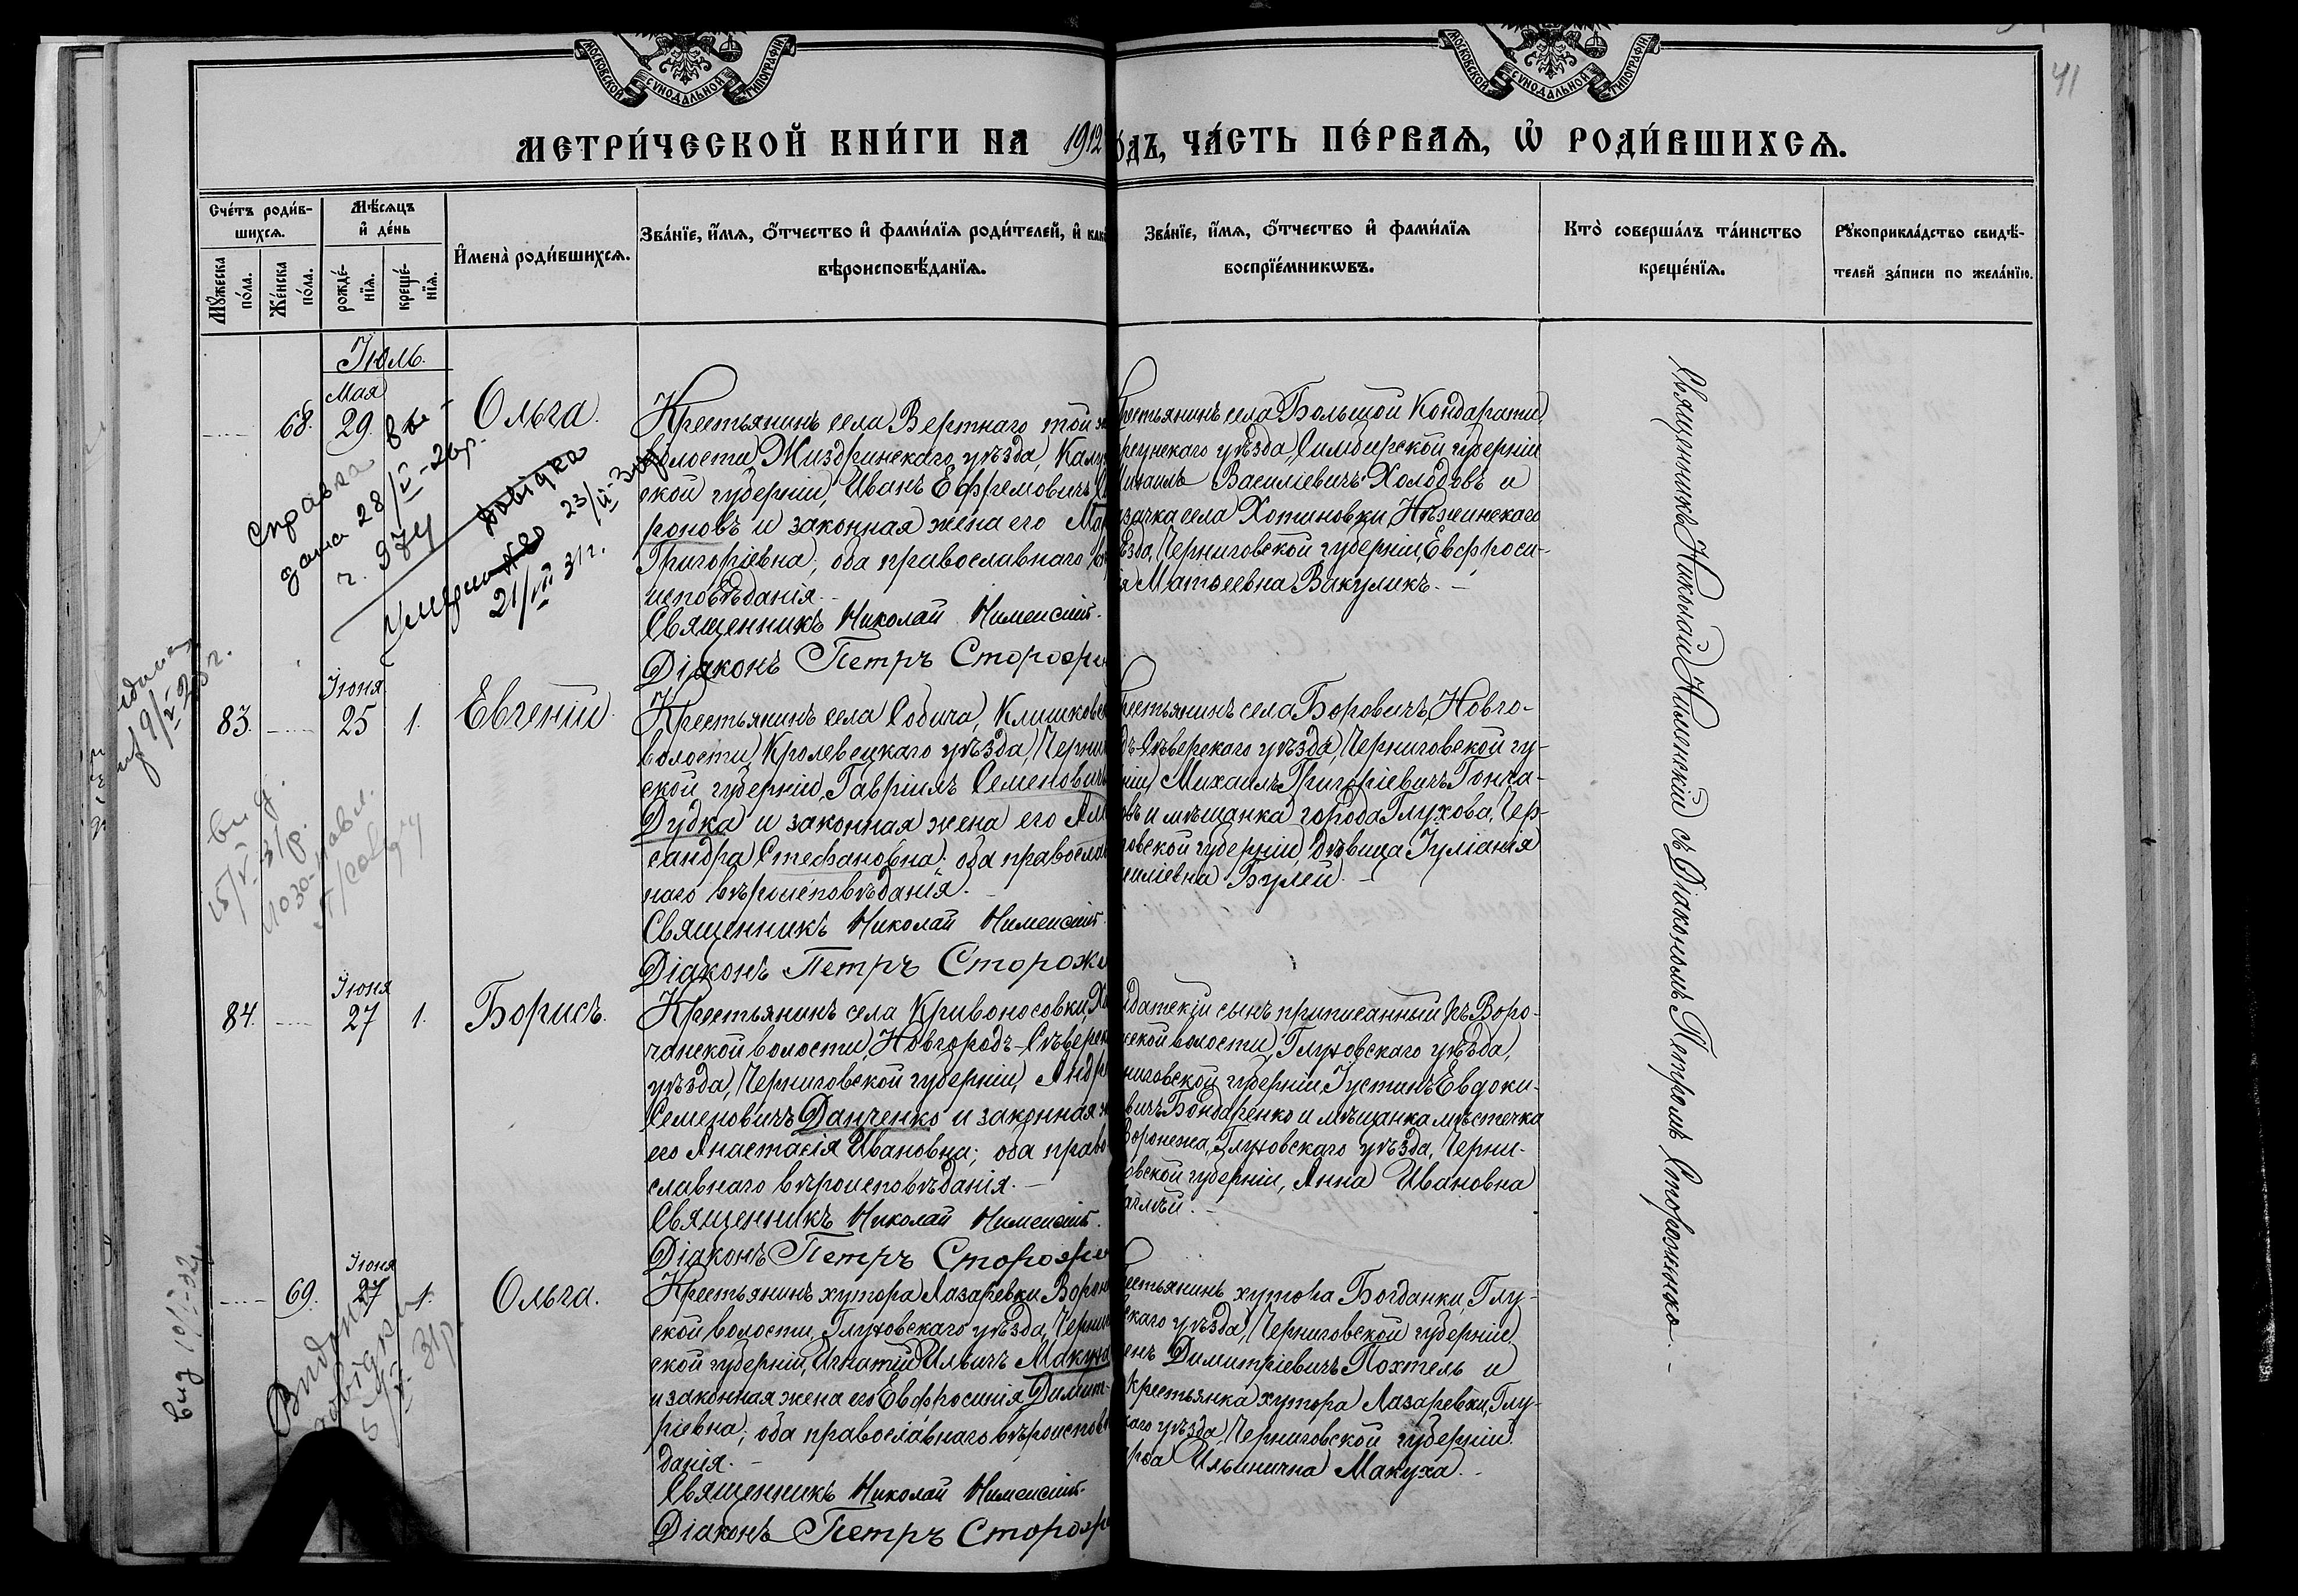 МОСКОВСКОЙ СУНОДАЛЬНОЙ ТИПОГРАФІИ
МОСКОВСКОЙ СУНОДАЛЬНОЙ ТИПОГРАФІИ
41
МЕТРИ́ЧЕСКОЙ КНИ́ГИ НА 1912
О́ДЪ, ЧА́СТЬ ПЕ́РВАЯ, Ѡ҆ РОДИ́ВШИХСЯ.
Сче́тъ роди́в-
шихся.
Мѣ́сяцъ
и҆ де́нь
Мꙋ́жеска
по́ла.
Же́нска
по́ла.
рожде́-
нїя.
креще́-
нїя.
И҆мена̀ роди́вшихся.
Зва́нїе, и҆́мя, ѻ҆́тчество и҆ фами́лїя роди́телей, и҆ как
вѣроисповѣ́данїя.
Зва́нїе, и҆́мя, ѻ҆́тчество и҆ фами́лїя
воспрїе́мникѡвъ.
Кто̀ соверша́лъ та́инство
креще́нїя.
Рꙋкоприкла́дство свидѣ́-
телей за́писи по жела́нїю.
Іюль.
68.
Мая
29.
Ольга.
Крестьянинъ села Вертнаго той
волости, Жиздринскаго уѣзда, Калу
ской губерніи, Иванъ Ефремовичъ
роновъ и законная жена его Ма
Григоріевна, оба православнаго
исповѣданія.
Священникъ Николай
Діаконъ Петръ Стороже
рестьянинъ села Большой Кондарати
рсунскаго уѣзда, Симбирской губерніи
Михаилъ Василіевичъ Холодовъ и
зачка села Хотиновки, Нѣжинскаго
ѣзда, Черниговской губерніи, Евфроси-
я Матѳеевна Вакуликъ.
справка
дана 28/V-26р.
ч. 974
довідка
23/
21/VII 31г.
83.
Іюня
25
1.
Евгеній.
Крестьянинъ села Собича, Клишковс
волости, Кролевецкаго уѣзда, Черни
ской губерніи, Гавріилъ Семеновичъ
Дудка и законная жена его Але
сандра Стефановна; оба православ
наго вѣроисповѣданія.
Священникъ Николай
Діаконъ Петръ Стороже
рестьянинъ села Боровичъ, Новго-
дъ-Сѣверскаго уѣзда, Черниговской гу-
ніи, Михаилъ Григоріевичъ Гонча-
овъ и мѣщанка города Глухова, Чер-
говской губерніи, дѣвица Іуліанія
силіевна Булей.
84.
Іюня
27
1.
Борисъ.
Крестьянинъ села Кривоносовки, Хи
чанской волости, Новгородъ-Сѣверск
уѣзда, Черниговской губерніи, Андре
Семеновичъ Данченко и законная ж
его Анастасія Ивановна; оба право
славнаго вѣроисповѣданія.
Священникъ Николай
Діаконъ Петръ Стороже
лдатскій сынъ, приписанный къ Воро-
жской волости, Глуховскаго уѣзда,
ниговской губерніи, Іустинъ Евдоки-
вичъ Бондаренко и мѣщанка мѣстечка
Воронежа, Глуховскаго уѣзда, Черни-
овской губерніи, Анна Ивановна
69.
Іюня
27
1.
Ольга.
Крестьянинъ хутора Лазаревки, Ворон
ской волости, Глуховскаго уѣзда, Черни
ской губерніи, Игнатій Ильичъ Макуха
и законная жена его Евфросинія Димит-
ріевна; оба православнаго вѣроисповѣ
данія.
Священникъ Николай
Діаконъ Петръ Стороже
рестьянинъ хутора Богданки, Глу-
скаго уѣзда, Черниговской губерніи,
енъ Димитріевичъ Похтель и
крестьянка хутора Лазаревки, Глу-
каго уѣзда, Черниговской губерніи
Ильинична Макуха.
Священникъ Николай съ Діакономъ Петромъ Стороженко.